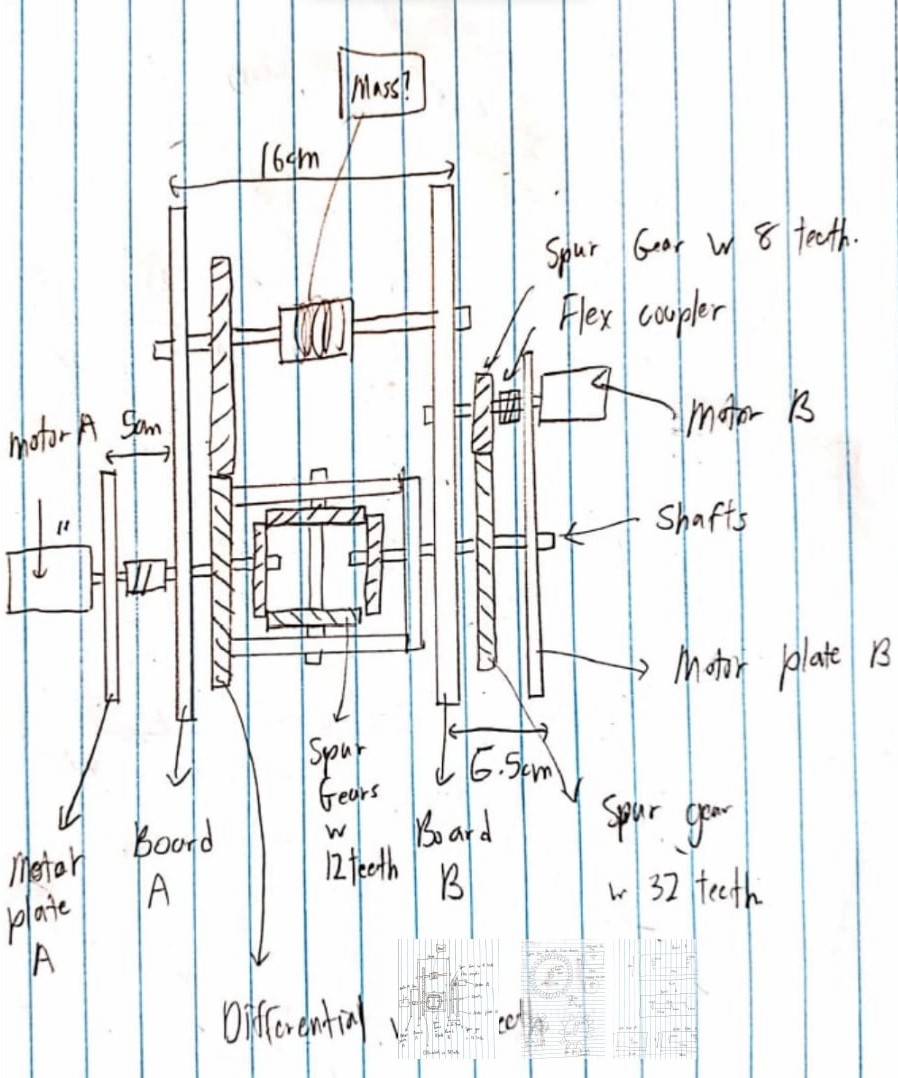 Mass?
16cm
Spur Gear w 8 teeth.
Flex coupler
Motor A
5cm
Motor B
Shafts
Motor plate B
6.5cm
Spur
Gears
w
12 teeth
Spur gear
w 32 teeth
Motor
plate
A
Board
A
Board
B
Differential